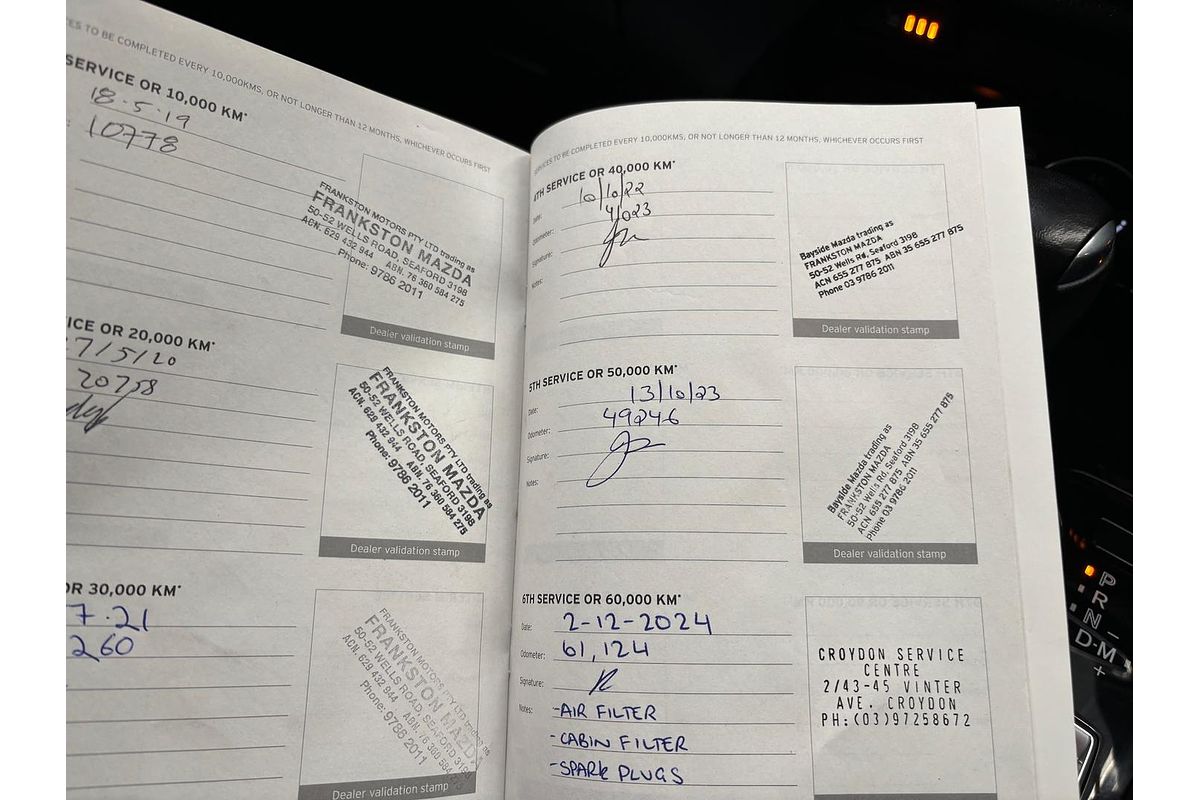 ES TO BE COMPLETED EVERY 10,000KMS, OR NOT LONGER THAN 12 MONTHS, WHICHEVER OCCURS FIRST
SERVICE OR 10,000 KM*
18.5.19
10778
FRANKSTON MOTORS PTY LTD trading as
FRANKSTON MAZDA
50-52 WELLS ROAD, SEAFORD 3198
ACN. 629 432 944 ABN. 76 360 584 275
Phone: 9786 2011
Dealer validation stamp
ICE OR 20,000 KM*
7/5/20
20758
FRANKSTON MOTORS PTY LTD trading as
FRANKSTON MAZDA
50-52 WELLS ROAD, SEAFORD 3198
ACN. 629 432 944 ABN. 76 360 584 275
Phone: 9786 2011
Dealer validation stamp
OR 30,000 KM*
7.21
260
FRANKSTON MOTORS PTY LTD trading as
FRANKSTON MAZDA
50-52 WELLS ROAD, SEAFORD 3198
ACN. 629 432 944 ABN. 76 360 584 275
Phone: 9786 2011
Dealer validation stamp
SERVICES TO BE COMPLETED EVERY 10,000KMS, OR NOT LONGER THAN 12 MONTHS, WHICHEVER OCCURS FIRST
4TH SERVICE OR 40,000 KM*
Date: 10/10/22
Odometer: 41023
Signature:
Notes:
Bayside Mazda trading as
FRANKSTON MAZDA
50-52 Wells Rd, Seaford 3198
ACN 655 277 875 ABN 35 655 277 875
Phone 03 9786 2011
Dealer validation stamp
5TH SERVICE OR 50,000 KM*
Date: 13/10/23
Odometer: 49246
Signature:
Notes:
Bayside Mazda trading as
FRANKSTON MAZDA
50-52 Wells Rd, Seaford 3198
ACN 655 277 875 ABN 35 655 277 875
Phone 03 9786 2011
Dealer validation stamp
6TH SERVICE OR 60,000 KM*
Date: 2-12-2024
Odometer: 61,124
Signature:
Notes: -AIR FILTER
-CABIN FILTER
-SPARK PLUGS
CROYDON SERVICE
CENTRE
2/43-45 VINTER
AVE. CROYDON
PH:(03)97258672
P
R
N
D-M
+
−